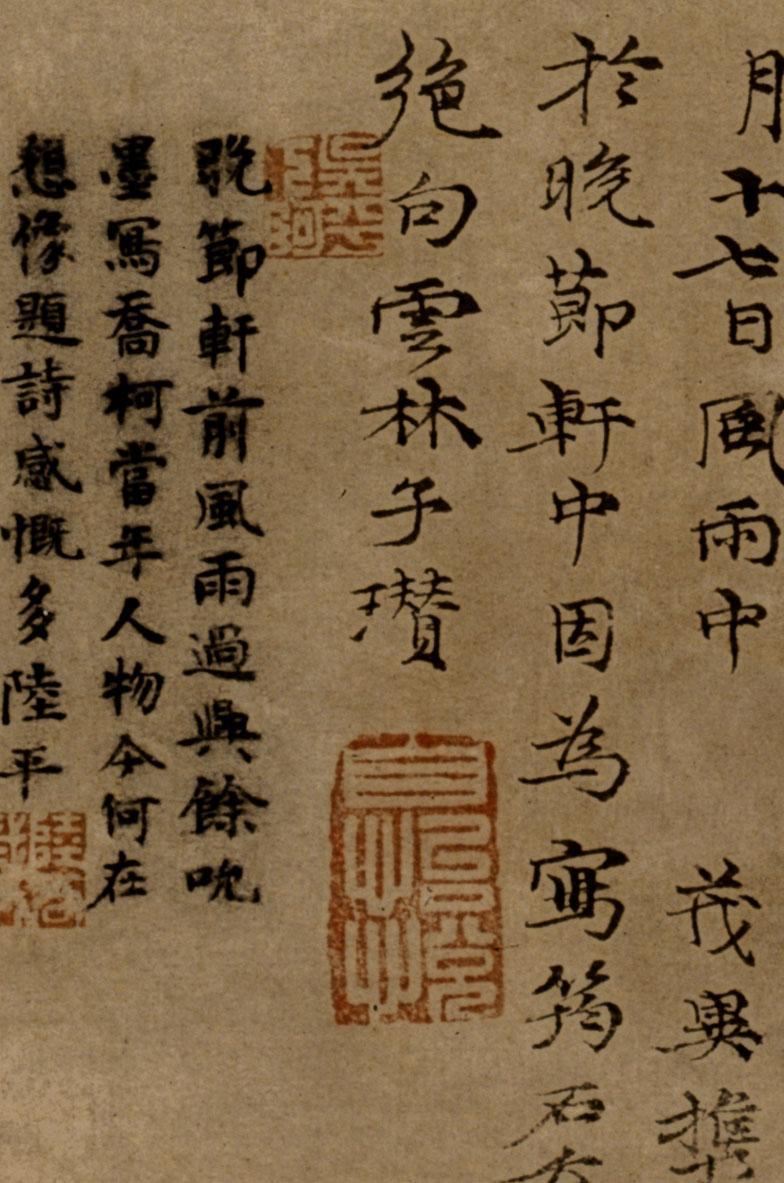 月十七日風雨中 茂異攜
於晚節軒中因為寫筠石
絶句雲林子瓚
晚節軒前風雨過興餘吮
墨寫喬柯當年人物今何在
想像題詩感慨多陸平